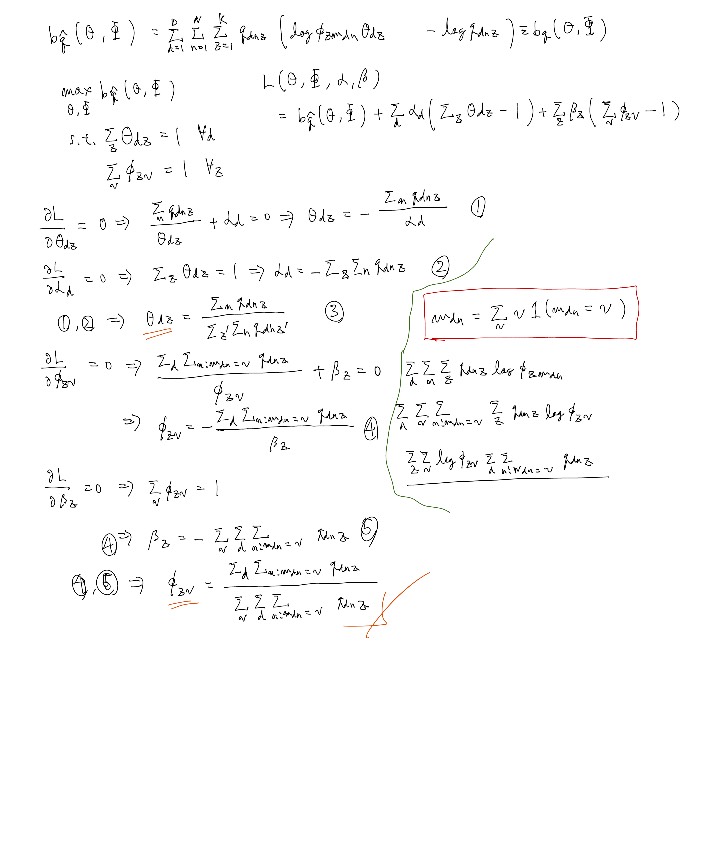 b_q̂(θ, Φ) = Σ_{d=1}^{D} Σ_{n=1}^{N} Σ_{z=1}^{K} q_{dnz} (log φ_{z w_{dn}} θ_{dz} - log q_{dnz}) = b_q(θ, Φ)
max_{θ,Φ} b_q̂(θ, Φ)
s.t. Σ_z θ_{dz} = 1 ∀d
Σ_v φ_{zv} = 1 ∀z
L(θ, Φ, α, β)
= b_q̂(θ, Φ) + Σ_d α_d (Σ_z θ_{dz} - 1) + Σ_z β_z (Σ_v φ_{zv} - 1)
∂L/∂θ_{dz} = 0 ⇒ Σ_n q_{dnz} / θ_{dz} + α_d = 0 ⇒ θ_{dz} = - Σ_n q_{dnz} / α_d ①
∂L/∂α_d = 0 ⇒ Σ_z θ_{dz} = 1 ⇒ α_d = - Σ_z Σ_n q_{dnz} ②
①, ② ⇒ θ_{dz} = Σ_n q_{dnz} / Σ_{z'} Σ_n q_{dnz'} ③
∂L/∂φ_{zv} = 0 ⇒ Σ_d Σ_{n:w_{dn}=v} q_{dnz} / φ_{zv} + β_z = 0
⇒ φ_{zv} = - Σ_d Σ_{n:w_{dn}=v} q_{dnz} / β_z ④
∂L/∂β_z = 0 ⇒ Σ_v φ_{zv} = 1
④ ⇒ β_z = - Σ_v Σ_d Σ_{n:w_{dn}=v} q_{dnz} ⑤
④, ⑤ ⇒ φ_{zv} = Σ_d Σ_{n:w_{dn}=v} q_{dnz} / Σ_v Σ_d Σ_{n:w_{dn}=v} q_{dnz}
w_{dn} = Σ_v v 1(w_{dn} = v)
Σ_d Σ_n Σ_z q_{dnz} log φ_{z w_{dn}}
Σ_d Σ_v Σ_{n:w_{dn}=v} Σ_z q_{dnz} log φ_{zv}
Σ_z Σ_v log φ_{zv} Σ_d Σ_{n:w_{dn}=v} q_{dnz}